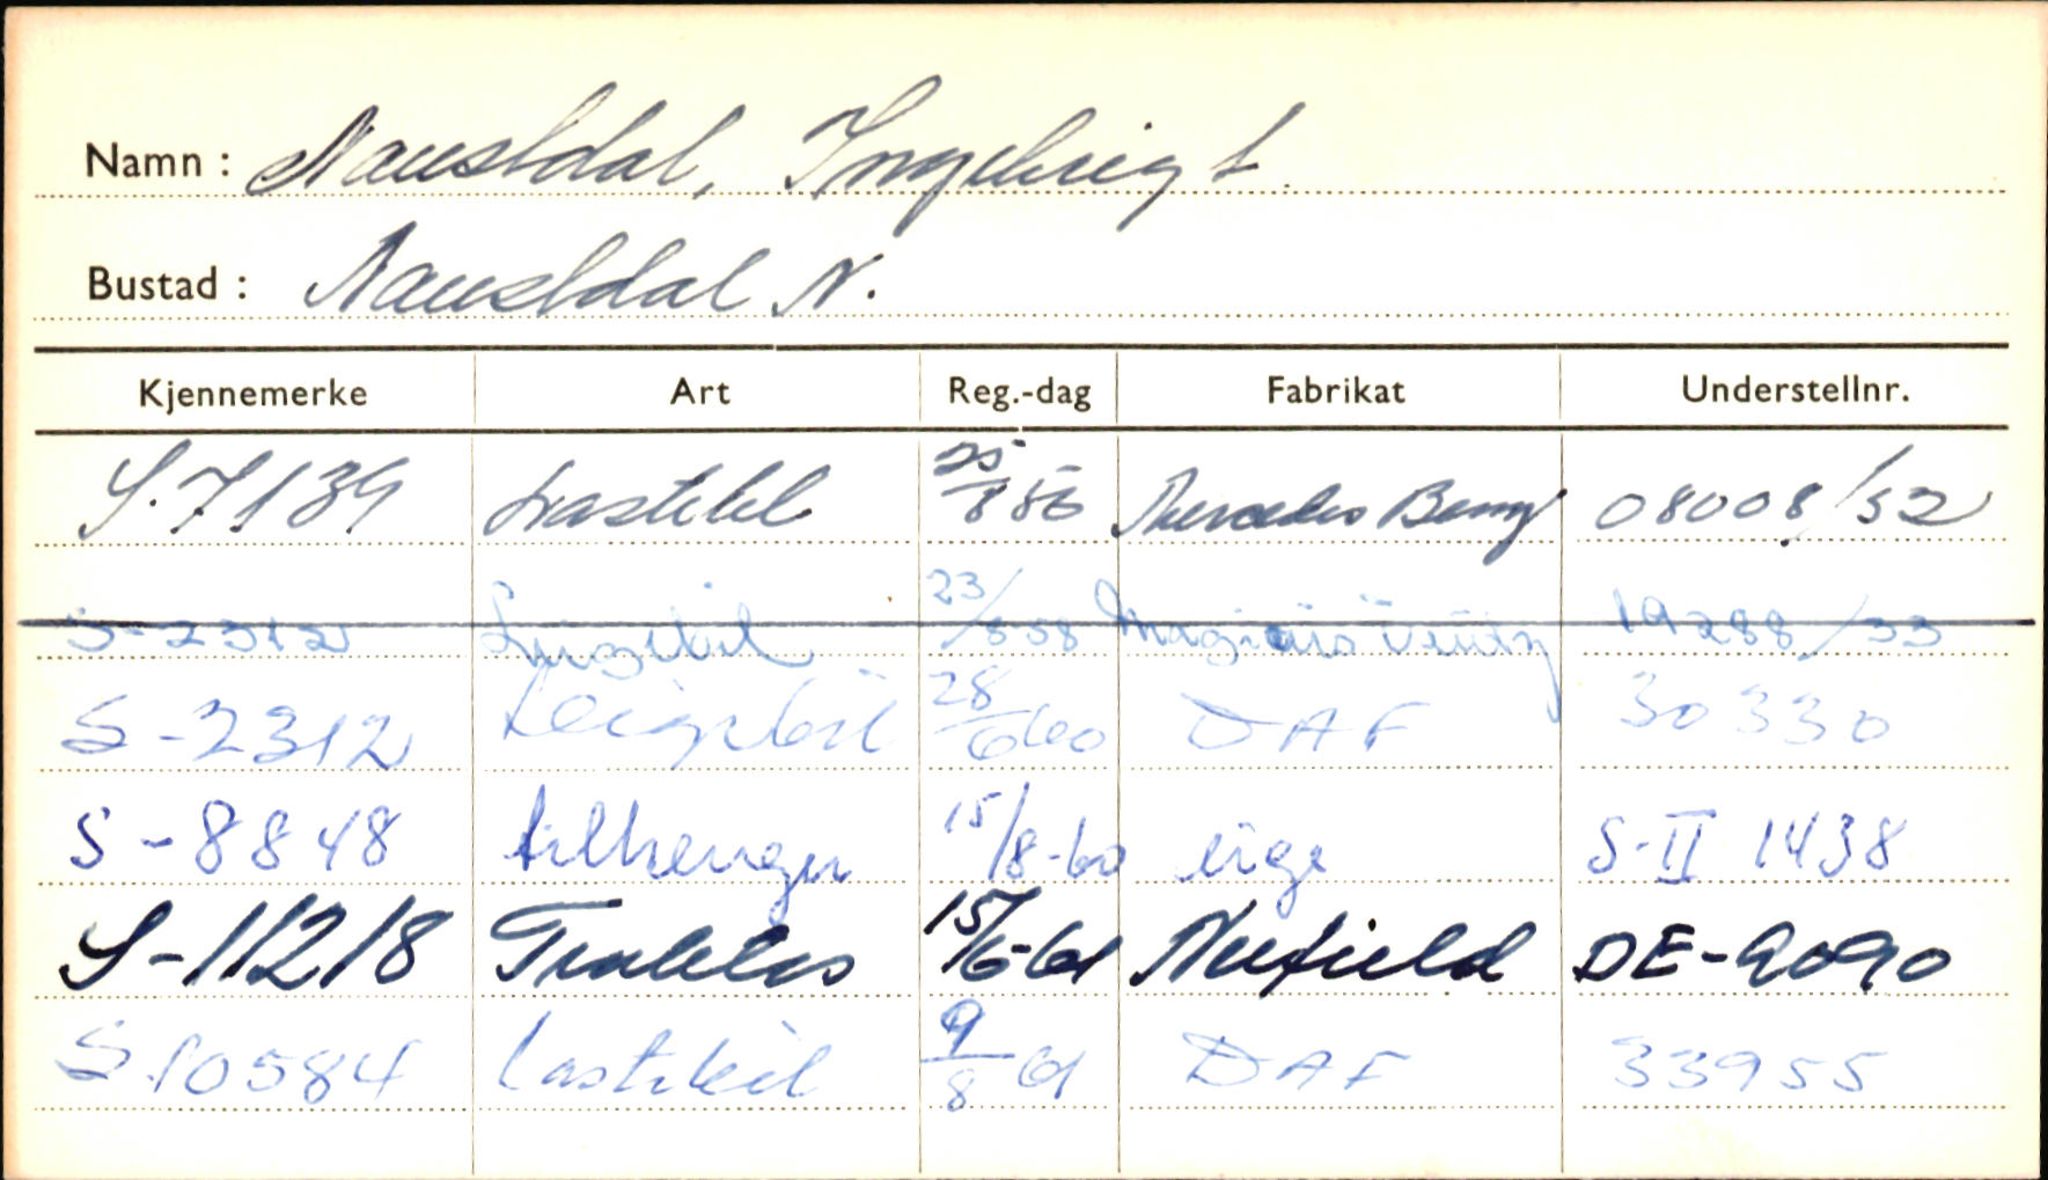 Namn : Naustdal, Ingebrigt
Bustad : Naustdal N.
Kjennemerke Art Reg.-dag Fabrikat Understellnr.
S.7139 Lastebil 25/8 56 Mercedes Benz 08008/52
S-2312 23/8-58 Magirus Deutz 19288/33
S-2312 28/6 60 DAF 30330
S-8848 tilhenger 15/8-60 eige S-II 1438
S-11218 Traktor 15/6-61 Nufield DE-9090
S 10584 Lastebil 9/8 61 DAF 33955